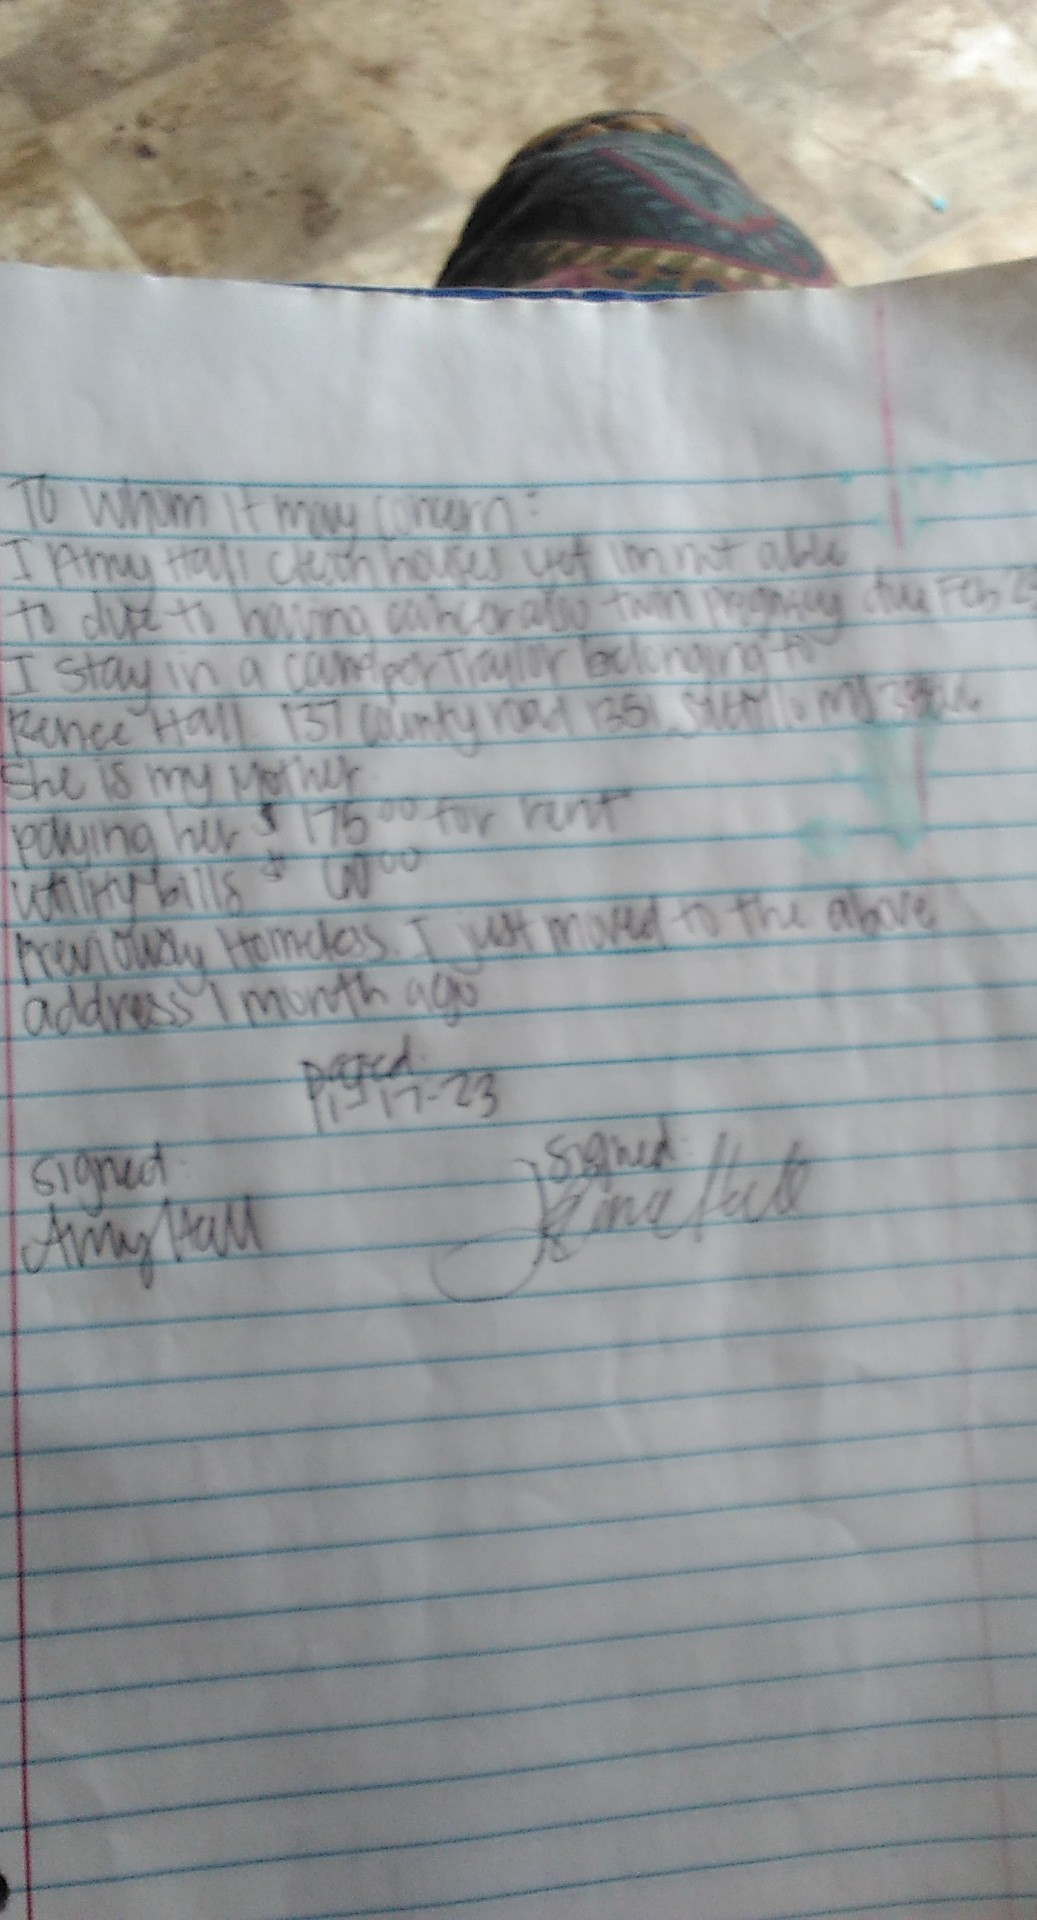 To whom it may concern:
I Amy Hall clean houses yet im not able
to due to having cancer also twin pregnancy due Feb
I stay in a camper Traylor belonging to
Renee Hall 137 County road 1351 Saltillo MS
She is my Mother
paying her $ 175 00 for rent
utility bills $ 00
previously Homeless. I just moved to the above
address 1 month ago
17-23
signed: signed:
Amy Hall Hall